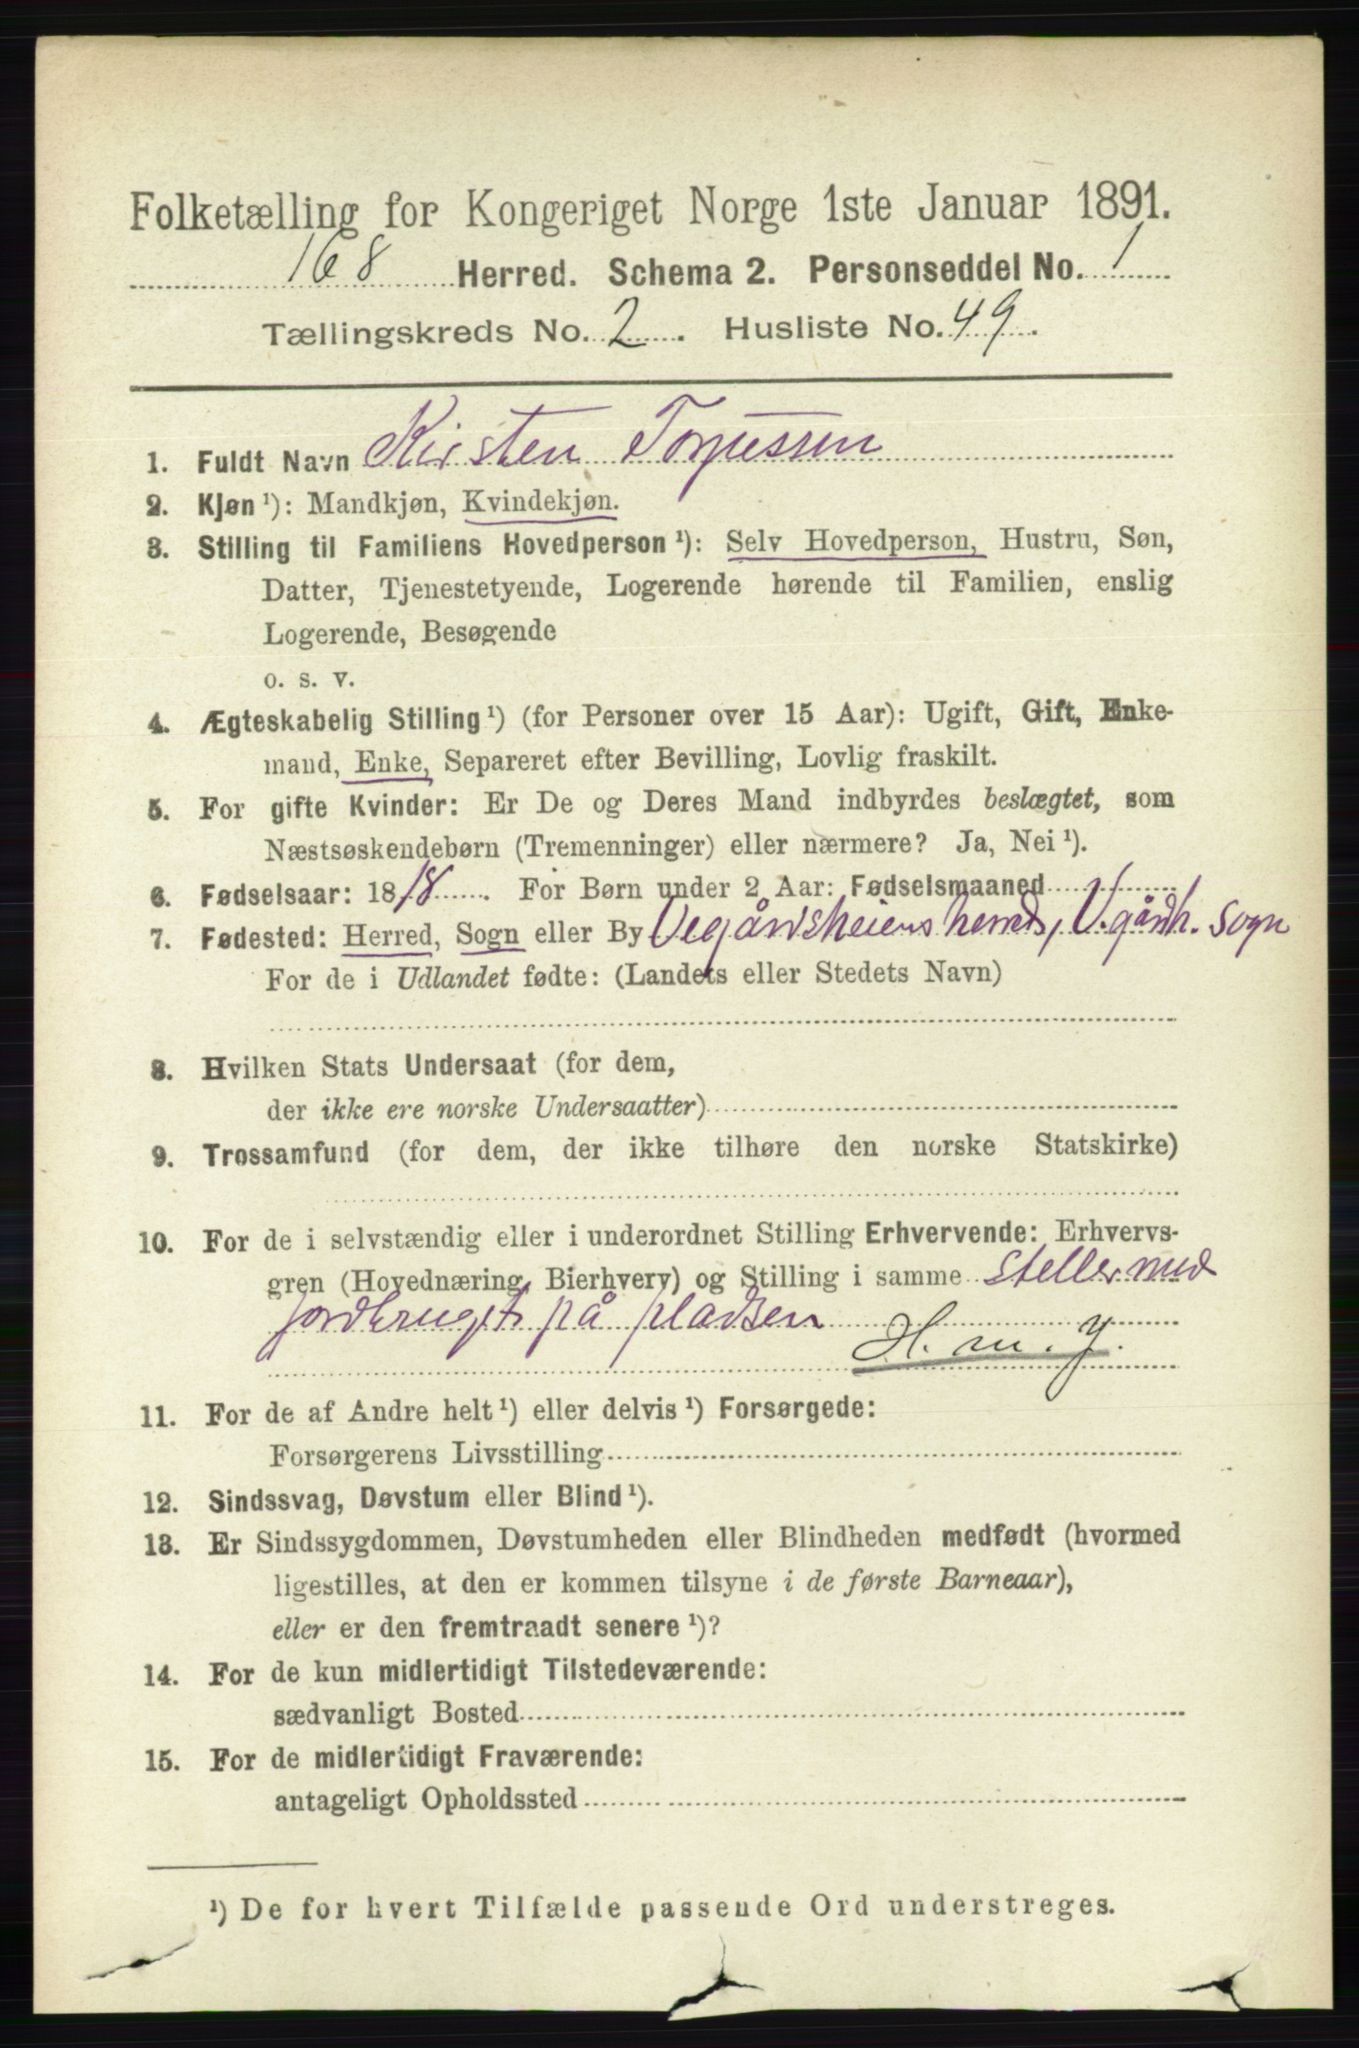 Folketælling for Kongeriget Norge 1ste Januar 1891.
168 Herred. Schema 2. Personseddel No. 1
Tællingskreds No. 2. Husliste No. 49.
1. Fuldt Navn Kirsten Torjussen
2. Kjøn ¹): Mandkjøn, Kvindekjøn.
3. Stilling til Familiens Hovedperson ¹): Selv Hovedperson, Hustru, Søn,
Datter, Tjenestetyende, Logerende hørende til Familien, enslig
Logerende, Besøgende
o. s. v.
4. Ægteskabelig Stilling ¹) (for Personer over 15 Aar): Ugift, Gift, Enke-
mand, Enke, Separeret efter Bevilling, Lovlig fraskilt.
5. For gifte Kvinder: Er De og Deres Mand indbyrdes beslægtet, som
Næstsøskendebørn (Tremenninger) eller nærmere? Ja, Nei ¹).
6. Fødselsaar: 1818. For Børn under 2 Aar: Fødselsmaaned
7. Fødested: Herred, Sogn eller By Vegårdsheiens herreds, V.gårdh. sogn
For de i Udlandet fødte: (Landets eller Stedets Navn)
8. Hvilken Stats Undersaat (for dem,
der ikke ere norske Undersaatter)
9. Trossamfund (for dem, der ikke tilhøre den norske Statskirke)
10. For de i selvstændig eller i underordnet Stilling Erhvervende: Erhvervs-
gren (Hovednæring, Bierhverv) og Stilling i samme steller med
jordbruget på pladsen
H. m. J.
11. For de af Andre helt ¹) eller delvis ¹) Forsørgede:
Forsørgerens Livsstilling
12. Sindssvag, Døvstum eller Blind ¹).
13. Er Sindssygdommen, Døvstumheden eller Blindheden medfødt (hvormed
ligestilles, at den er kommen tilsyne i de første Barneaar),
eller er den fremtraadt senere ¹)?
14. For de kun midlertidigt Tilstedeværende:
sædvanligt Bosted
15. For de midlertidigt Fraværende:
antageligt Opholdssted
¹) De for hvert Tilfælde passende Ord understreges.